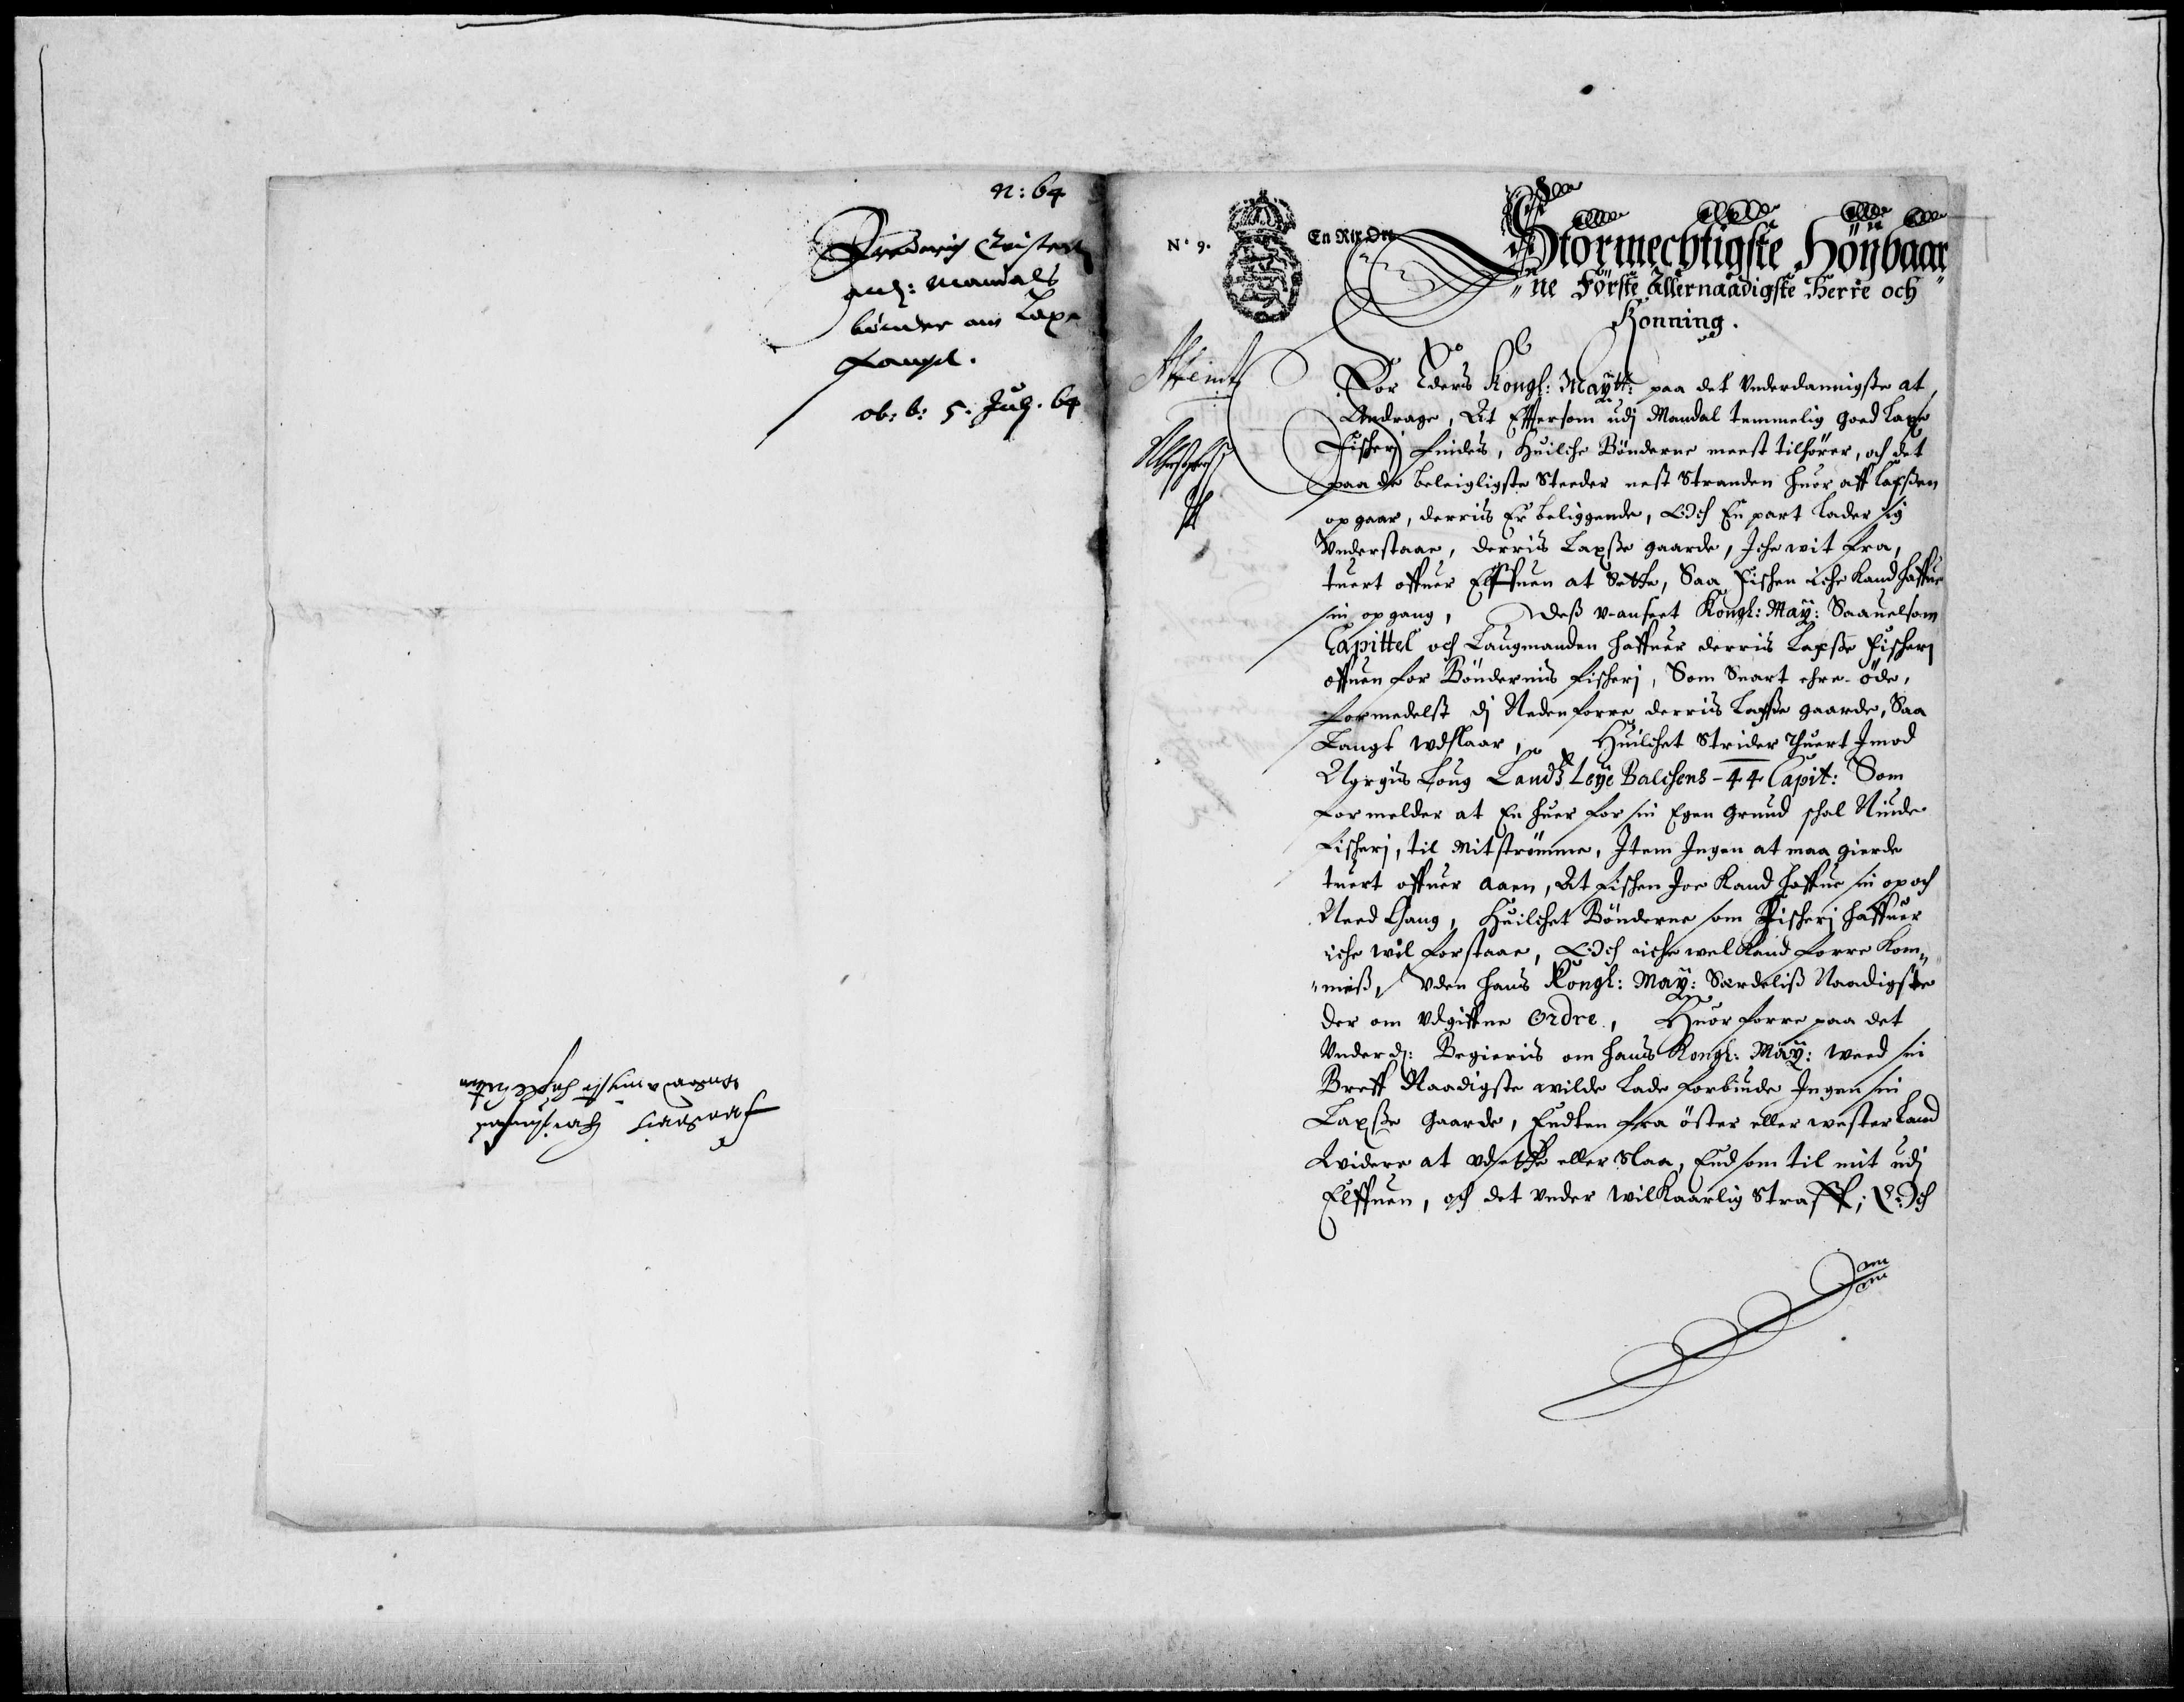 n: 64
Frederich Christen
anl: Mandals
bönder om Laxe
fangst.
ob: b: 5. Julj. 64
N° 9.
En Rix Ort
Stormechtigste Höÿbaar
"ne Förste Allernaadigste Herre och
Konning.
For Eders Kongl: Maÿtt: paa det Vnderdannigste at
Andrage, At Efftersom udj Mandal temmelig goed Laxe
Fischerj findes, Huilche Bönderne meest tilhörer, och det
paa de beleigligste Steeder nest Stranden huor aff Laxßen
opgaar, derris Er beliggende, Och En part lader sig
Vnderstaae, derris Laxße gaarde, Iche wit fra,
tuert offuer Elffuen at Sette, Saa Fischen iche kand haffue
sin opgang, Deß v-anseet Kongl: Maÿ: Saauelsom
Capittel och Laugmanden haffuer derris Laxße Fischerj
offuen for Böndernis fischerj, Som Snart ehre öde,
formedelst dj Nedenforre derris Laxße gaarde, Saa
Langt wdslaar, Huilchet Strider Thuert Imod
Norgis Loug Landz Leÿe Balchens - 44 Capit: Som
formelder at En huer for sin Egen grund schal Niude
fischerj, til Mitströmme, Item Ingen at maa gierde
tuert offuer aaen, At fischen Joe kand haffue sin op och
Need Gang, Huilchet Bönderne som Fischerj haffuer
iche wil forstaae, Och iche wel kand forre kom"
"miß, Vden hans Kongl: Maÿ: Særdeliß Naadigste
der om Vdgiffne Ordre, Huorforre paa det
Vnderd: Begieris om hans Kongl: Maÿ: weed sin
Breff Naadigste wilde lade forbiude Ingen sin
Laxße gaarde, Endten fra öster eller wester Land
widere at vdsette eller Slaa, End som til mit udj
Elffuen, och det vnder wilkaarlig Straff; Och